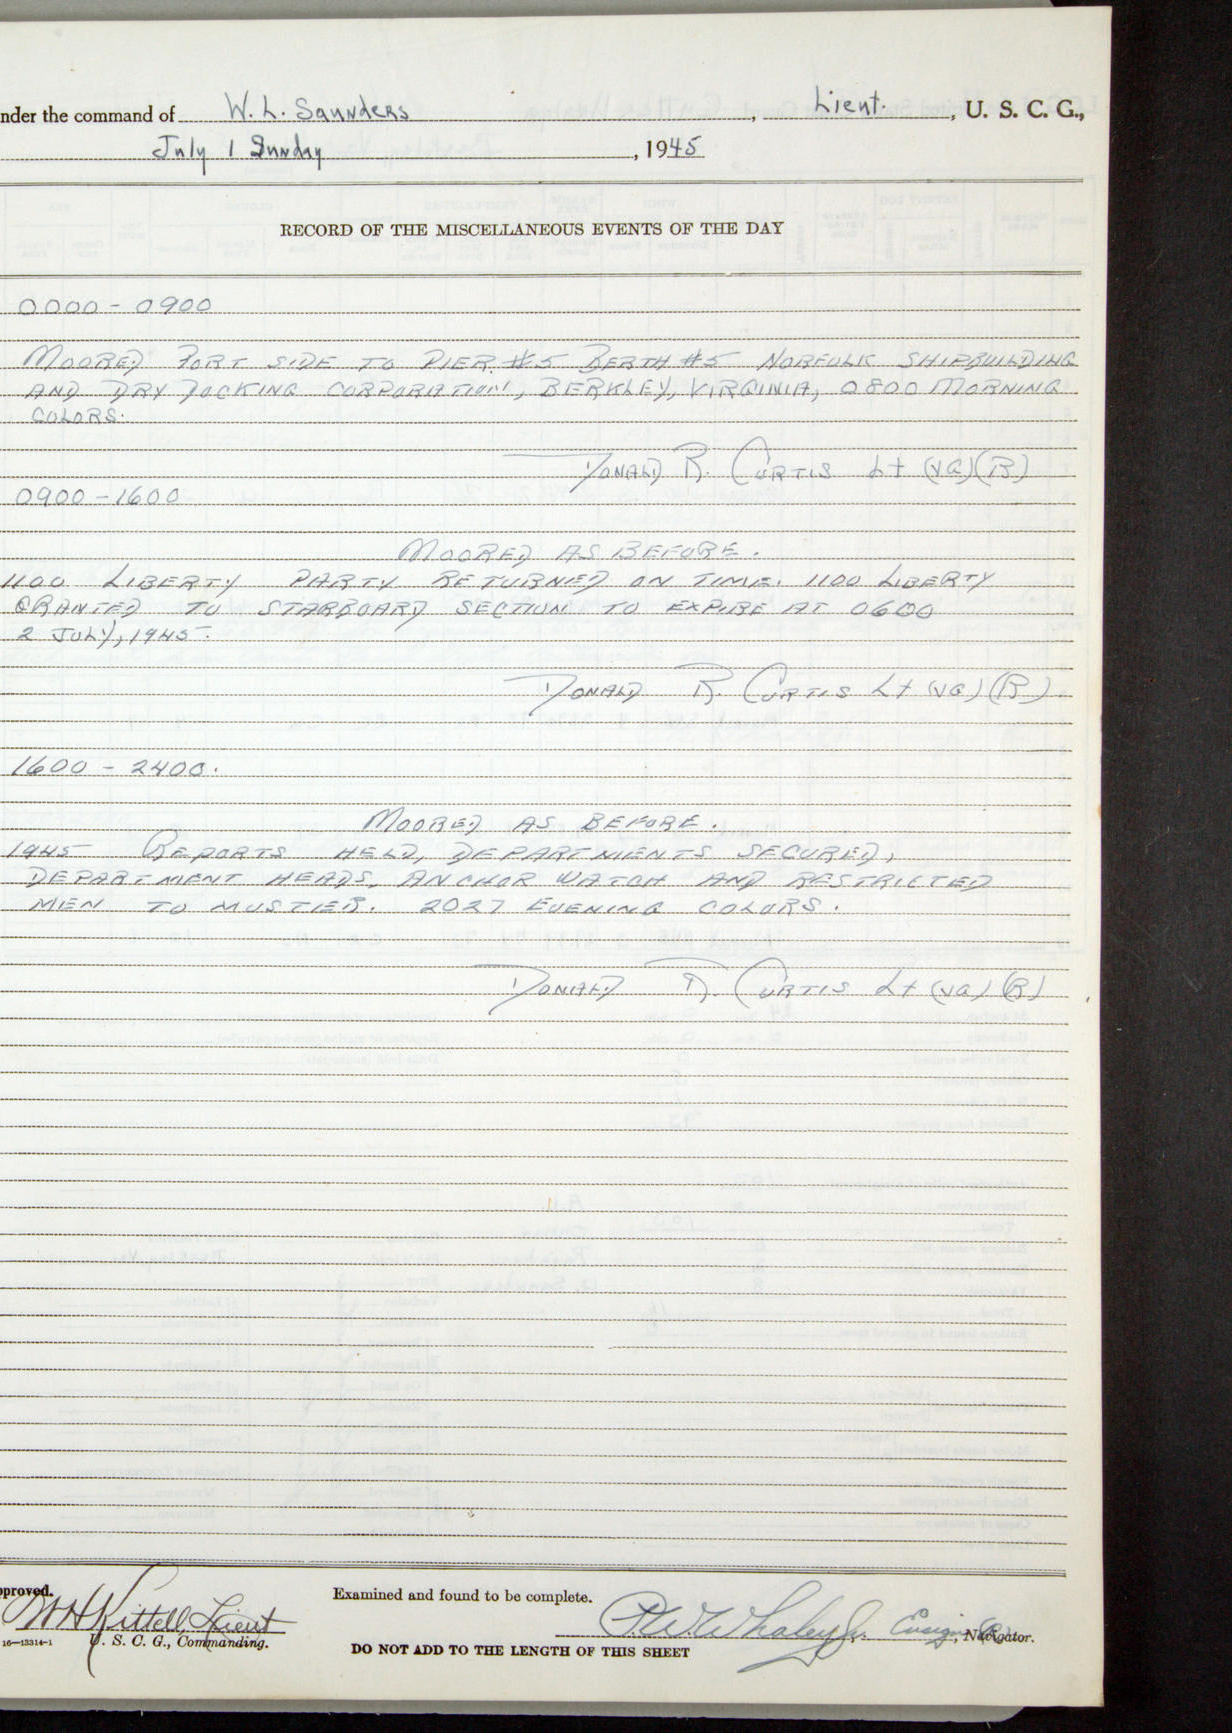 nder the command of W. L. Saunders, Lieut., U. S. C. G.,
July 1 Sunday, 1945
RECORD OF THE MISCELLANEOUS EVENTS OF THE DAY
0000 - 0900
MOORED PORT SIDE TO PIER #5 BERTH #5 NORFOLK SHIPBUILDING
AND DRY DOCKING CORPORATION, BERKLEY, VIRGINIA, 0800 MORNING
COLORS.
DONALD R. CURTIS Lt (JG)(R)
0900 - 1600
MOORED AS BEFORE.
1100 LIBERTY PARTY RETURNED ON TIME. 1100 LIBERTY
GRANTED TO STARBOARD SECTION TO EXPIRE AT 0600
2 JULY, 1945.
DONALD R. CURTIS Lt (JG)(R)
1600 - 2400.
MOORED AS BEFORE.
1945 REPORTS HELD, DEPARTMENTS SECURED,
DEPARTMENT HEADS, ANCHOR WATCH AND RESTRICTED
MEN TO MUSTER. 2027 EVENING COLORS.
DONALD R. CURTIS Lt (JG)(R)
pproved.
Examined and found to be complete.
W H Kittell, Lieut
P. W. Whaley Jr. Ensign (R), Navigator.
16—13314-1 U. S. C. G., Commanding.
DO NOT ADD TO THE LENGTH OF THIS SHEET